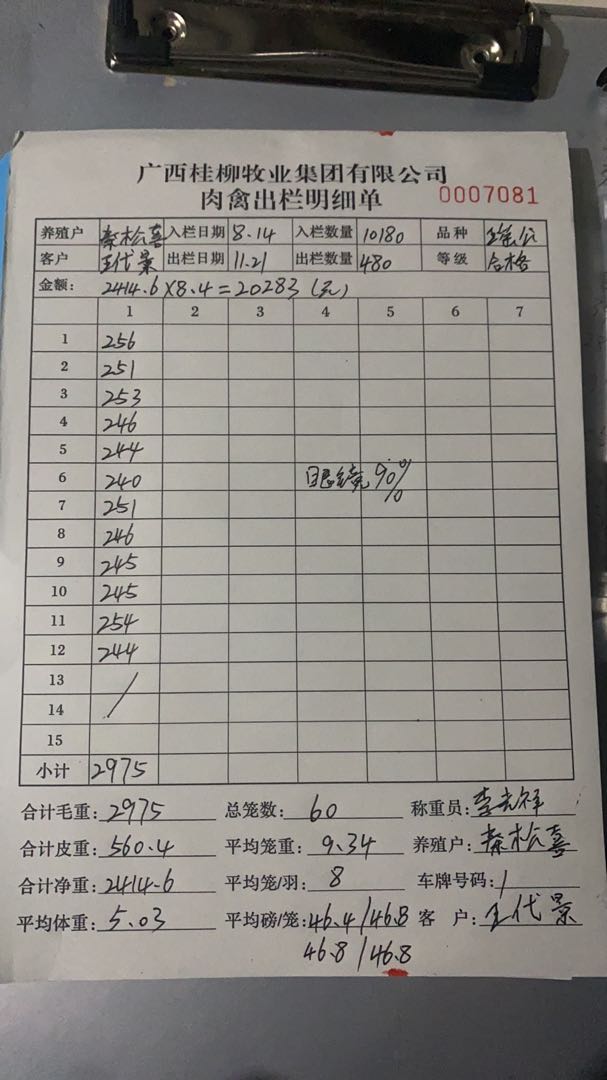 广西桂柳牧业集团有限公司
肉禽出栏明细单 0007081
养殖户 秦松喜 入栏日期 8.14 入栏数量 10180 品种
客户 王代景 出栏日期 11.21 出栏数量 480 等级 合格
金额: 2414.6×8.4=20283(元)
1 2 3 4 5 6 7
1 256
2 251
3 253
4 246
5 244
6 240 眼绕 90%
7 251
8 246
9 245
10 245
11 254
12 244
13 /
14
15
小计 2975
合计毛重: 2975 总笼数: 60 称重员: 李志祥
合计皮重: 560.4 平均笼重: 9.34 养殖户: 秦松喜
合计净重: 2414.6 平均笼/羽: 8 车牌号码: /
平均体重: 5.03 平均磅/笼: 46.4/46.8 客 户: 王代景
46.8/46.8